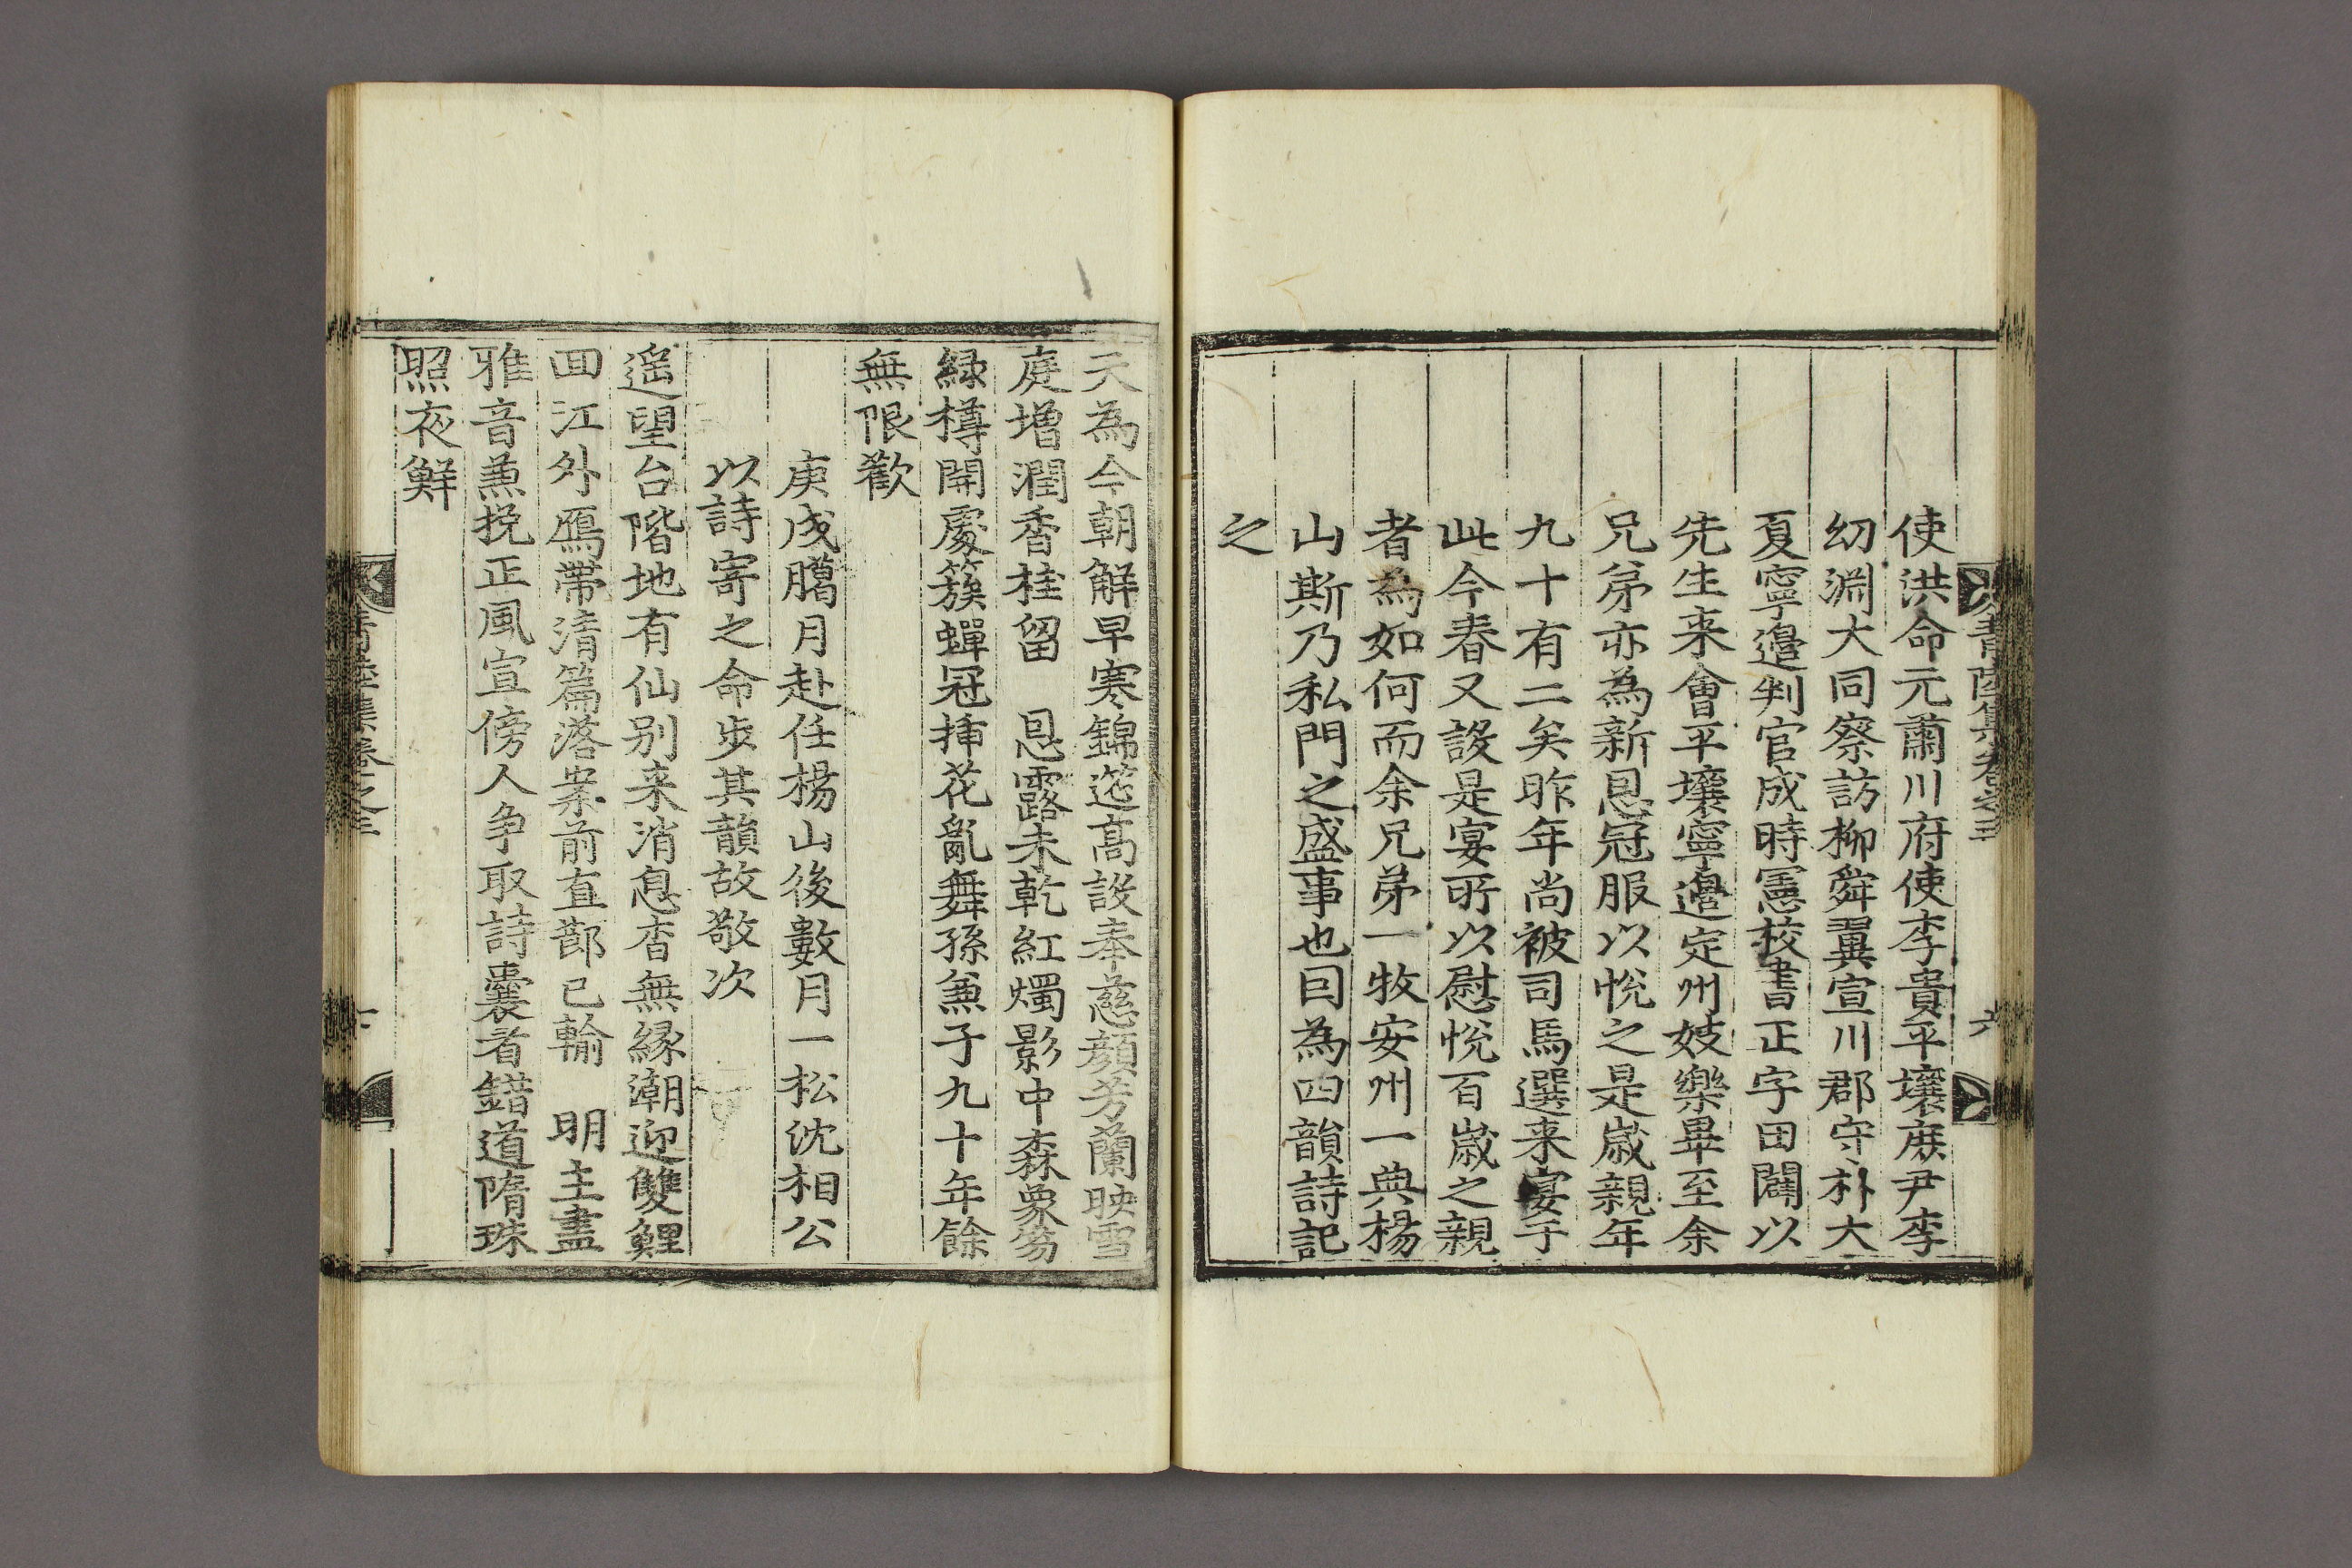 使洪命元蕭川府使李貴平壤庶尹李
幼淵大同察訪柳舜翼宣川郡守朴大
夏寧邉判官成時憲校書正字田闢以
先生来會平壤寧邉定州妓樂畢至余
兄弟亦為新恩冠服以悅之是歲親年
九十有二矣昨年尚被司馬選来宴于
此今春又設是宴所以慰悅百歲之親
者為如何而余兄弟一牧安州一典楊
山斯乃私門之盛事也因為四韻詩記
之
天為今朝解早寒錦筵高設奉慈顔芳蘭映雪
庭増潤香桂留 恩露未乾紅燭影中森象笏
緑樽開處簇蟬冠揷花亂舞孫兼子九十年餘
無限歡
庚戌臈月赴任楊山後數月一松沈相公
以詩寄之命步其韻故敬次
遥望台階地有仙别来消息杳無縁潮迎雙鯉
囬江外鴈帶清篇落案前直節已輸 明主盡
雅音兼挽正風宣傍人争取詩囊看錯道隋珠
照夜鮮